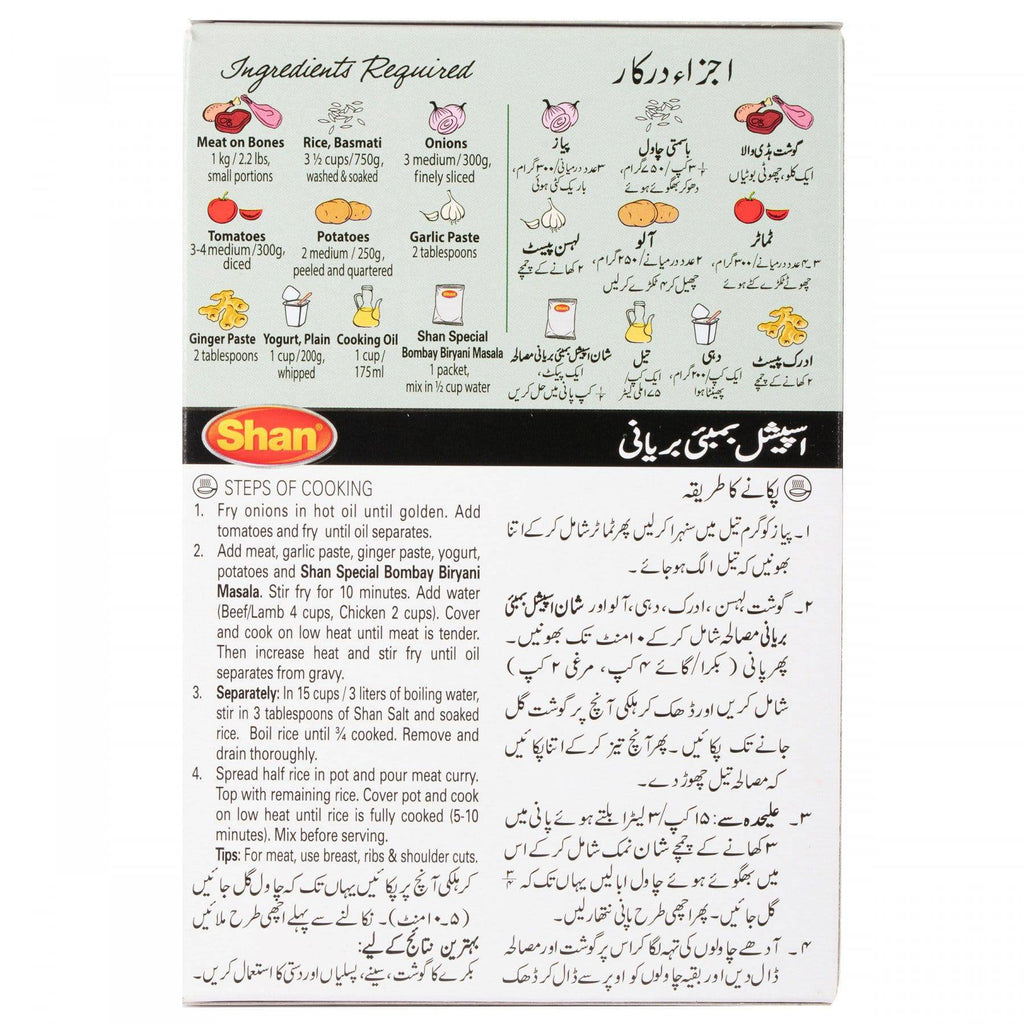 Ingredients Required
Meat on Bones
1 kg / 2.2 lbs,
small portions
Rice, Basmati
3 ½ cups/750g,
washed & soaked
Onions
3 medium/300g,
finely sliced
Tomatoes
3-4 medium/300g,
diced
Potatoes
2 medium / 250g,
peeled and quartered
Garlic Paste
2 tablespoons
Ginger Paste
2 tablespoons
Yogurt, Plain
1 cup/200g,
whipped
Cooking Oil
1 cup /
175ml
Shan
Shan Special
Bombay Biryani Masala
1 packet,
mix in ½ cup water
اجزاء درکار
گوشت ہڈی والا
ایک کلو، چھوٹی بوٹیاں
باسمتی چاول
۳ ۱/۲ کپ/۷۵۰گرام،
دھوکر بھگوئے ہوئے
پیاز
۳عدد درمیانی/۳۰۰گرام،
باریک کٹی ہوئی
ٹماٹر
۳۔۴عدد درمیانے/۳۰۰گرام،
چھوٹے ٹکڑے کٹے ہوئے
آلو
۲عدد درمیانے/۲۵۰گرام،
چھیل کر۴ ٹکڑے کرلیں
لہسن پیسٹ
۲ کھانے کے چمچے
ادرک پیسٹ
۲ کھانے کے چمچے
دہی
ایک کپ/۲۰۰گرام،
پھینٹا ہوا
تیل
ایک کپ/
۱۷۵ملی لیٹر
Shan
شان اسپیشل بمبئی بریانی مصالحہ
ایک پیکٹ،
۱/۲ کپ پانی میں حل کریں
Shan®
اسپیشل بمبئی بریانی
STEPS OF COOKING
1. Fry onions in hot oil until golden. Add
tomatoes and fry until oil separates.
2. Add meat, garlic paste, ginger paste, yogurt,
potatoes and Shan Special Bombay Biryani
Masala. Stir fry for 10 minutes. Add water
(Beef/Lamb 4 cups, Chicken 2 cups). Cover
and cook on low heat until meat is tender.
Then increase heat and stir fry until oil
separates from gravy.
3. Separately: In 15 cups / 3 liters of boiling water,
stir in 3 tablespoons of Shan Salt and soaked
rice. Boil rice until ¾ cooked. Remove and
drain thoroughly.
4. Spread half rice in pot and pour meat curry.
Top with remaining rice. Cover pot and cook
on low heat until rice is fully cooked (5-10
minutes). Mix before serving.
Tips: For meat, use breast, ribs & shoulder cuts.
پکانے کا طریقہ
۱۔ پیاز کو گرم تیل میں سنہرا کرلیں پھر ٹماٹر شامل کرکے اتنا
بھونیں کہ تیل الگ ہوجائے ۔
۲۔ گوشت، لہسن، ادرک، دہی، آلو اور شان اسپیشل بمبئی
بریانی مصالحہ شامل کرکے ۱۰منٹ تک بھونیں۔
پھر پانی ( بکرا/گائے ۴ کپ، مرغی ۲ کپ)
شامل کریں اور ڈھک کر ہلکی آنچ پر گوشت گل
جانے تک پکائیں ۔ پھر آنچ تیز کرکے اتنا پکائیں
کہ مصالحہ تیل چھوڑ دے۔
۳۔ علیحدہ سے: ۱۵کپ/۳ لیٹر ابلتے ہوئے پانی میں
۳ کھانے کے چمچے شان نمک شامل کرکے اس
میں بھگوئے ہوئے چاول ابالیں یہاں تک کہ ۳/۴
گل جائیں۔ پھر اچھی طرح پانی نتھار لیں۔
۴۔ آدھے چاولوں کی تہہ لگا کر اس پر گوشت اور مصالحہ
ڈال دیں اور بقیہ چاولوں کو اوپر سے ڈال کر ڈھک
کر ہلکی آنچ پر پکائیں یہاں تک کہ چاول گل جائیں
(۵۔۱۰منٹ)۔ نکالنے سے پہلے اچھی طرح ملائیں
بہترین نتائج کے لیے:
بکرے کا گوشت، سینے، پسلیاں اور دستی کا استعمال کریں۔